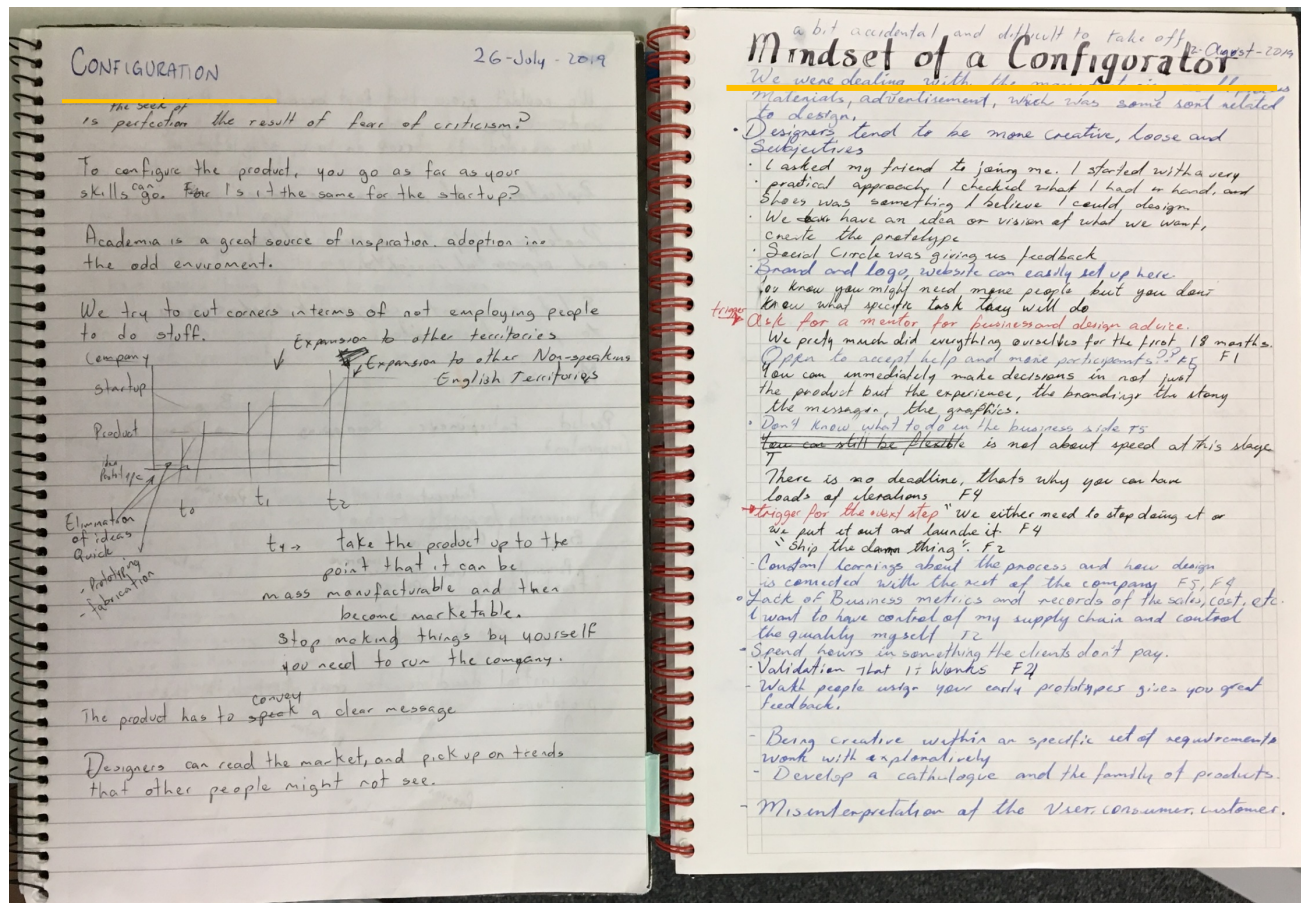 CONFIGURATION
26-July-2019
the seek of
is perfection the result of fear of criticism?
To configure the product, you go as far as your
skills can go. Is it the same for the startup?
Academia is a great source of inspiration. adoption in
the odd enviroment.
We try to cut corners in terms of not employing people
to do stuff.
Expansion to other territories
Company
Expansion to other Non-speaking
English Territories
startup
Product
the Prototype
t0
t1
t2
Elimination
of ideas
Quick
- Prototyping
- fabrication
t1 → take the product up to the
point that it can be
mass manufacturable and then
become marketable.
Stop making things by yourself
you need to run the company.
convey
The product has to speak a clear message
Designers can read the market, and pick up on trends
that other people might not see.
a bit accidental and difficult to take off
2-August-2019
Mindset of a Configurator
We were dealing with the
Materials, advertisement, which was some sort related
to design.
· Designers tend to be more creative, loose and
Subjectives
· I asked my friend to joing me. I started with a very
· practical approach, I checked what I had in hand, and
Shoes was something I believe I could design.
· We have an idea or vision of what we want,
create the prototype
· Social Circle was giving us feedback
· Brand and logo, website can easily set up here.
You know you might need more people but you dont
know what specific task they will do
trigger
Ask for a mentor for business and design advice.
We prety much did everything ourselves for the first 18 months.
F1
Oppen to accept help and more participants??
You can immediately make decisions in not just
the product but the experience, the branding, the story
the messages, the graphics.
· Don't know what to do in the business side F5
You can still be flexible is not about speed at this stage
T
There is no deadline, thats why you can have
loads of iterations F4
trigger for the next step "We either need to stop doing it or
we put it out and launche it. F4
"Ship the damn thing". F2
- Constant learnings about the process and how design
is connected with the rest of the company F5, F4
· Lack of Business metrics and records of the sales, cost, etc.
I want to have control of my supply chain and control
the quality myself
· Spend hours in something the clients don't pay.
- Validation That It Works F4
- Watch people usign your early prototypes gives you great
feedback.
- Being creative within an specific set of requirements
work with exploratively
- Develop a cathologue and the family of products.
- Misinterpretation of the User, consumer, customer.